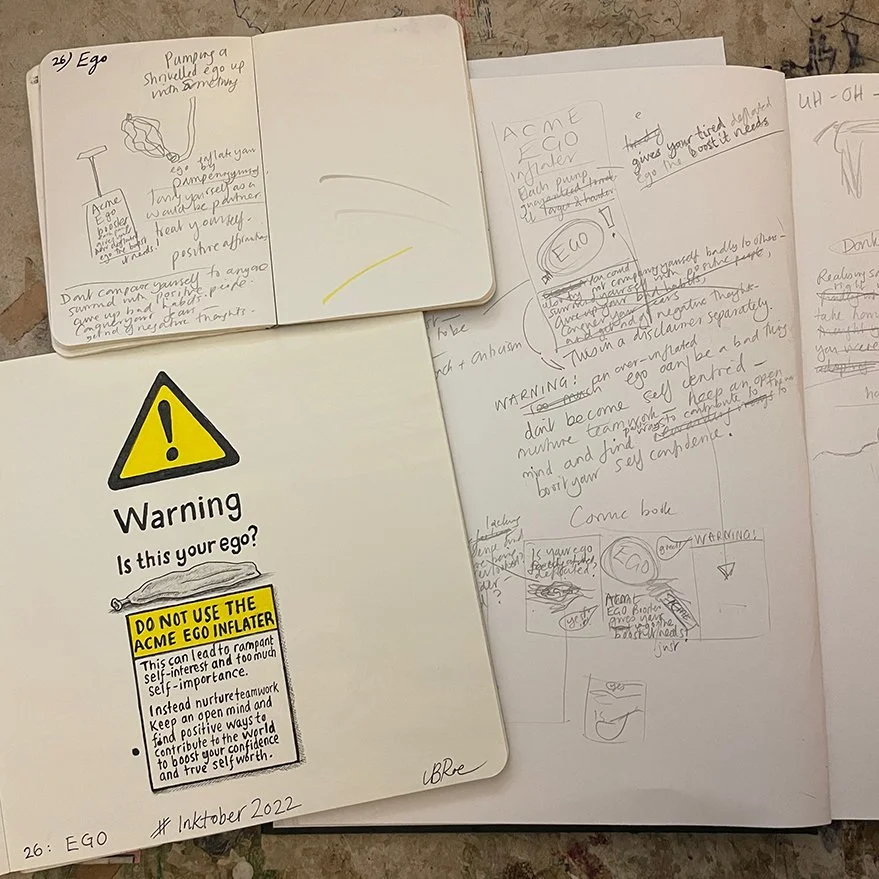 26) Ego
Pumping a
shrivelled ego up
with something
inflate your
ego by
pampering yourself
treat yourself as a
would be partner
treat yourself.
positive affirmations
Acme
Ego
booster
ego the boost
it needs!
Dont compare yourself to anyone
surround with positive people.
give up bad habits.
Conquer your fears.
get rid of negative thoughts.
Warning
Is this your ego?
DO NOT USE THE
ACME EGO INFLATER
This can lead to rampant
self-interest and too much
self-importance.
Instead nurture teamwork
Keep an open mind and
find positive ways to
contribute to the world
to boost your confidence
and true self worth.
26: EGO
# Inktober 2022
ACME
EGO
inflater
Each pump
guaranteed
it larger & harder
EGO!
gives your tired deflated
ego the boost it needs
not company yourself badly to others -
surround yourself with positive people,
give up your bad habits,
Conquer your fears
and get rid of negative thoughts.
This in a disclaimer separately.
WARNING! an over-inflated
Too much ego can be a bad thing
dont become self centred -
nurture teamwork - keep an open
mind and find ways to contribute to
boost your self confidence.
Comic book
Is your ego
deflated?
EGO
great!
WARNING!
yes
ACME
EGO Booster
gives your
ego the
boost it needs!
just
ACME
to be
+ criticism
UH-OH-
Dont
Realising
right
take home
you were